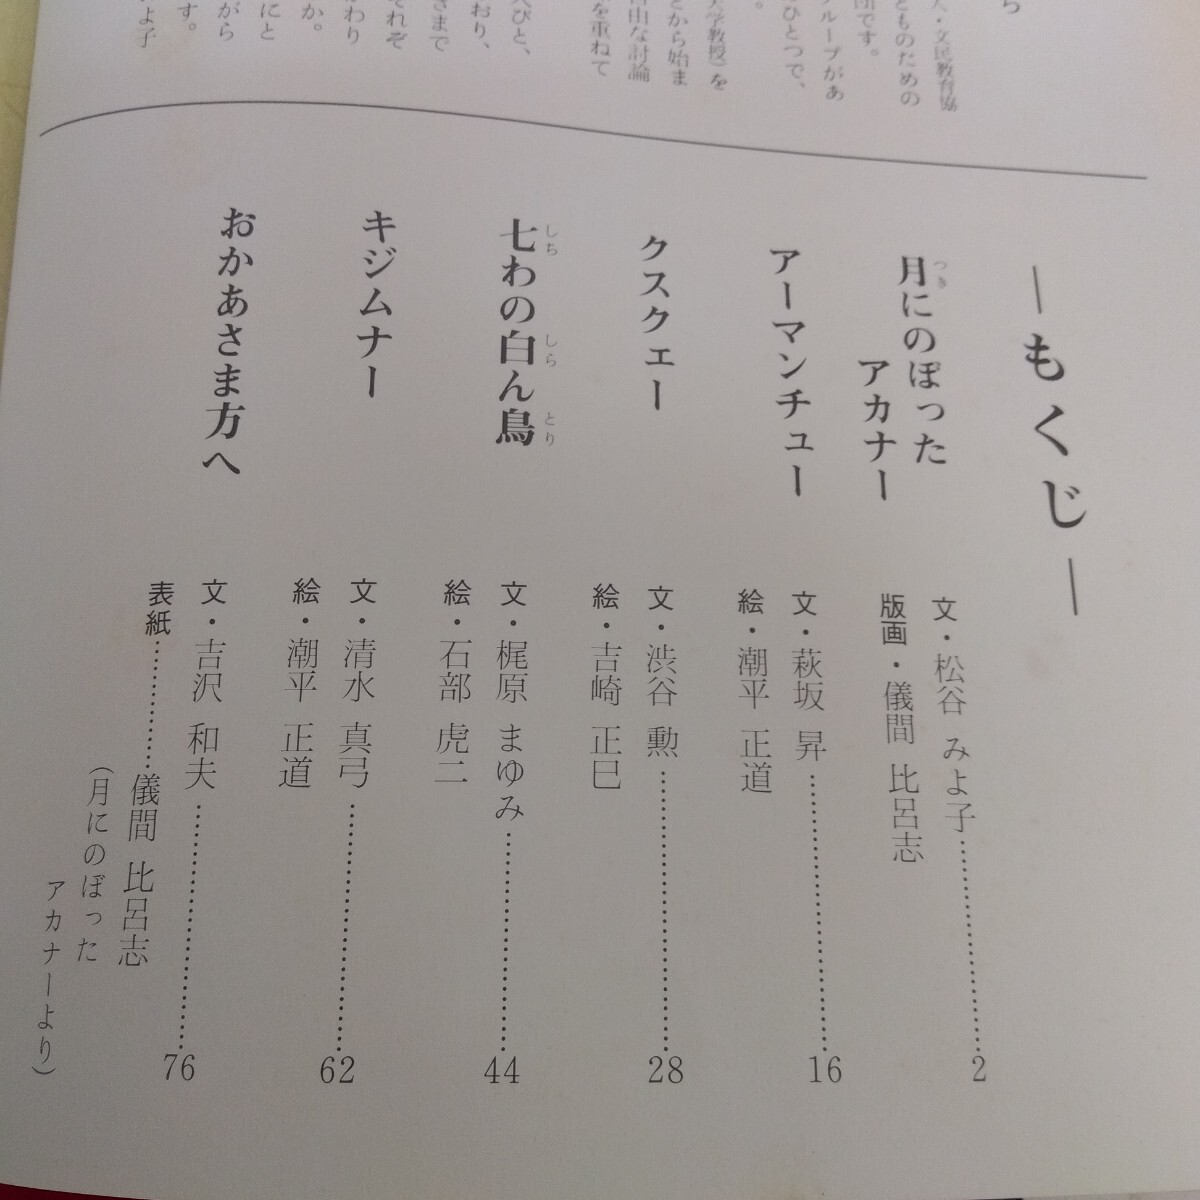 ら
人・文民教育協
どものための
団です。
グループがあ
ひとつで、
大学教授）を
とから始ま
自由な討論
を重ねて
人びと、
おり、
さまで
それぞ
かわり
か。
にと
がら
す。
よ子
―もくじ―
月にのぼった
つき
アカナー
文・松谷 みよ子…………2
版画・儀間 比呂志
アーマンチュー
文・萩坂 昇…………16
絵・潮平 正道
クスクェー
文・渋谷 勲…………28
絵・吉崎 正巳
七わの白ん鳥
しち しら とり
文・梶原 まゆみ…………44
絵・石部 虎二
キジムナー
文・清水 真弓…………62
絵・潮平 正道
おかあさま方へ
文・吉沢 和夫…………76
表紙…………儀間 比呂志
（月にのぼった
アカナーより）